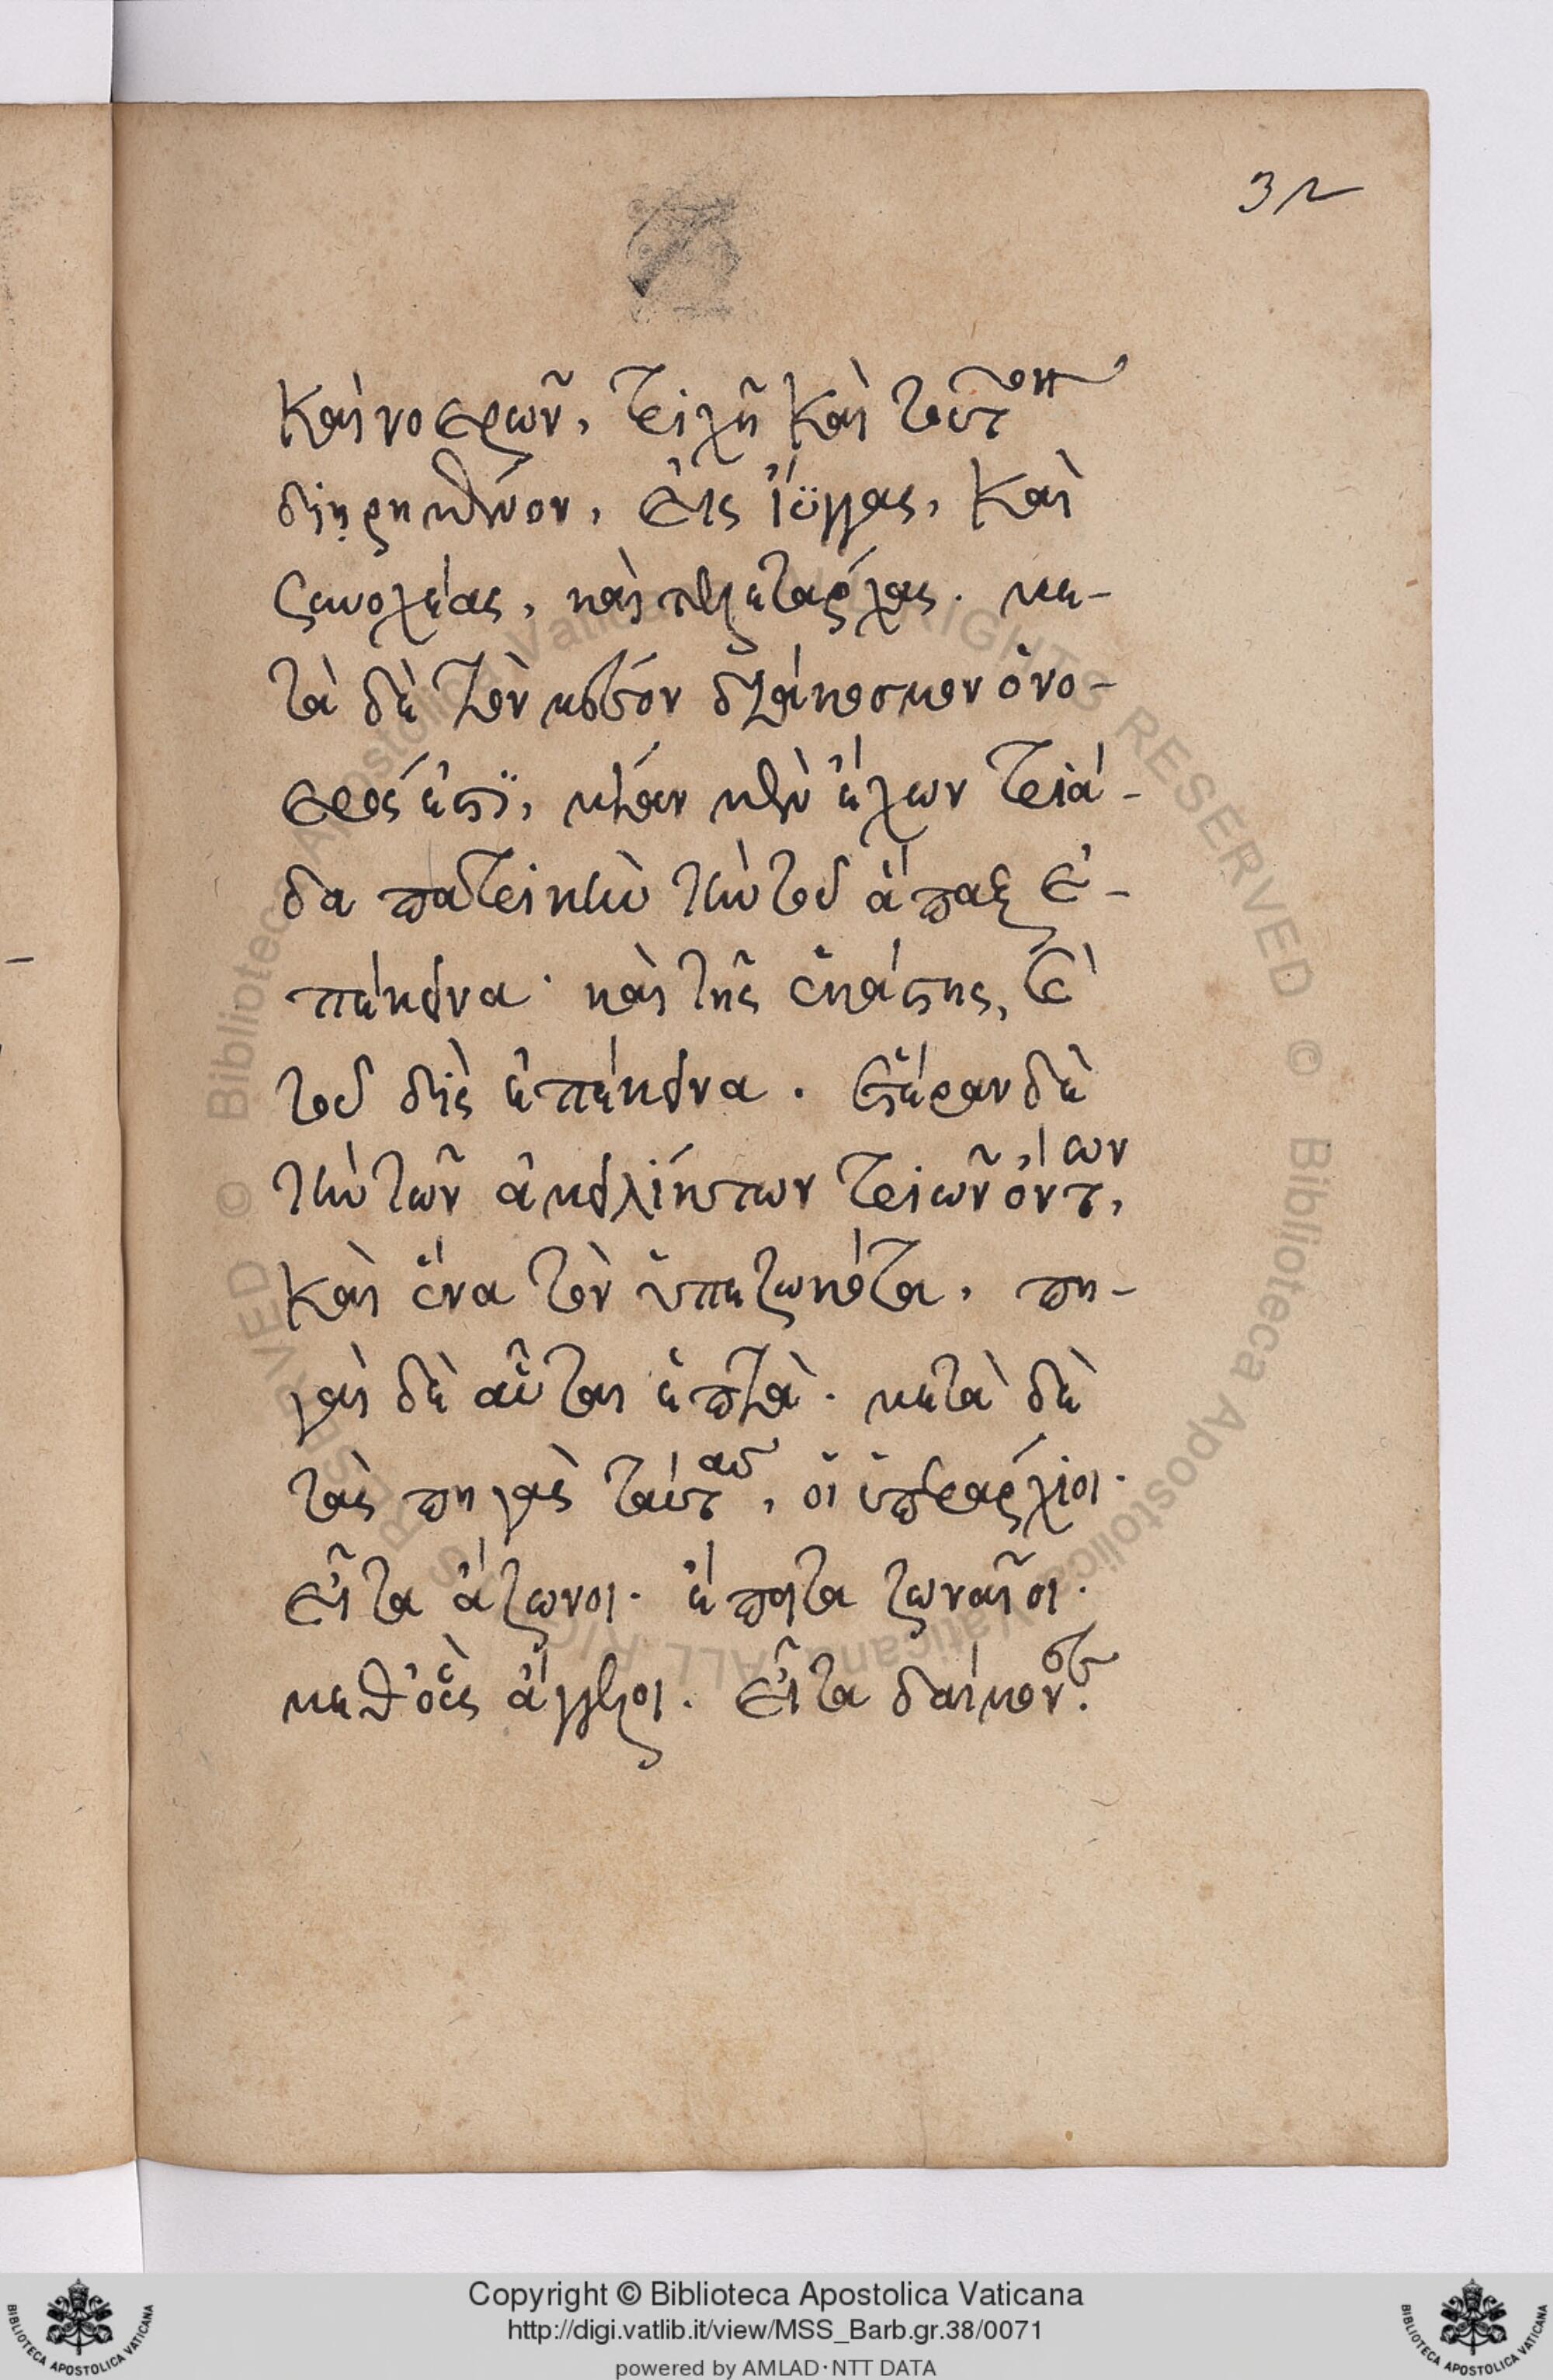 32
καὶ νοερῶν, τριχῆ καὶ τοῦτον
διῃρημένον, εἰς ἴϋγγας, καὶ
συνοχέας, καὶ τελετάρχας. με-
τὰ δὲ τὸν μέσον διάκοσμον ὁ νο-
ερός ἐστϊ, μίαν μὲν ἔχων τριά-
δα πατρικὴν τὴν τοῦ ἅπαξ ἐ-
πέκεινα· καὶ τῆς ἑκάτης, καὶ
τοῦ δὶς ἐπέκεινα. ἑτέραν δὲ
τὴν τῶν ἀμειλίκτων τριῶν ὄντων,
καὶ ἕνα τὸν ὑπεζωκότα. πη-
γαὶ δὲ αὗται ἑπτά. μετὰ δὲ
τὰς πηγὰς ταύτας, οἱ ὑπεράρχιοι.
εἶτα ἄζωνοι. ἔπειτα ζωναῖοι.
μεθ' οὓς ἄγγελοι. εἶτα δαίμονες.
Copyright © Biblioteca Apostolica Vaticana
http://digi.vatlib.it/view/MSS_Barb.gr.38/0071
powered by AMLAD·NTT DATA
BIBLIOTECA APOSTOLICA VATICANA
BIBLIOTECA APOSTOLICA VATICANA